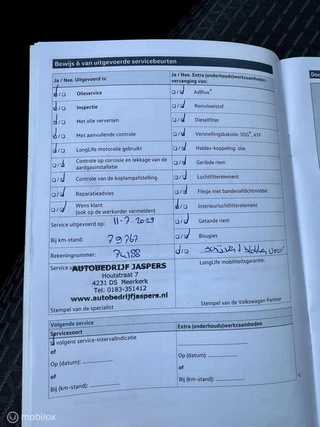 Bewijs 6 van uitgevoerde servicebeurten
Ja / Nee. Uitgevoerd is:
Olieservice
Inspectie
Met olie verversen
Met aanvullende controle
LongLife motorolie gebruikt
Controle op corrosie en lekkage van de
aardgasinstallatie
Controle van de koplampafstelling
Reparatieadvies
Wens klant
(ook op de werkorder vermelden)
Service uitgevoerd op:
Bij km-stand: 79767
Rekeningnummer: 74188
AUTOBEDRIJF JASPERS
Houtstraat 7
4231 DS Meerkerk
Tel: 0183-351412
www.autobedrijfjaspers.nl
Stempel van de specialist
Ja / Nee. Extra (onderhouds)werkzaamheden -
vervanging van:
AdBlue®
Remvloeistof
Dieselfilter
Versnellingsbakolie: DSG®, ATF
Haldex-koppeling: olie
Geribde riem
Luchtfilterelement
Flesje met bandenafdichtmiddel
Interieurluchtfilterelement
Getande riem
Bougies
LongLife mobiliteitsgarantie:
Stempel van de Volkswagen Partner
Volgende service
Servicesoort
volgens service-intervalindicatie
of
Op (datum):
of
Bij (km-stand):
Extra (onderhouds)werkzaamheden
Op (datum):
of
Bij (km-stand):
mobilox